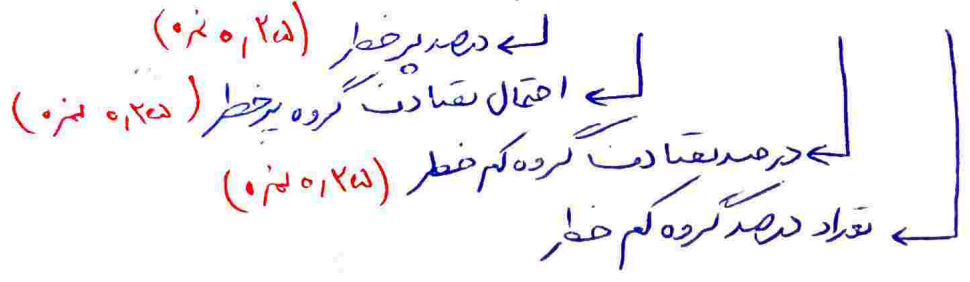 درصد پر خطر (۰,۲۵ نمره)
احتمال تصادف گروه پرخطر (۰,۲۵ نمره)
درصد تصادف گروه کم خطر (۰,۲۵ نمره)
تعداد درصد گروه کم خطر